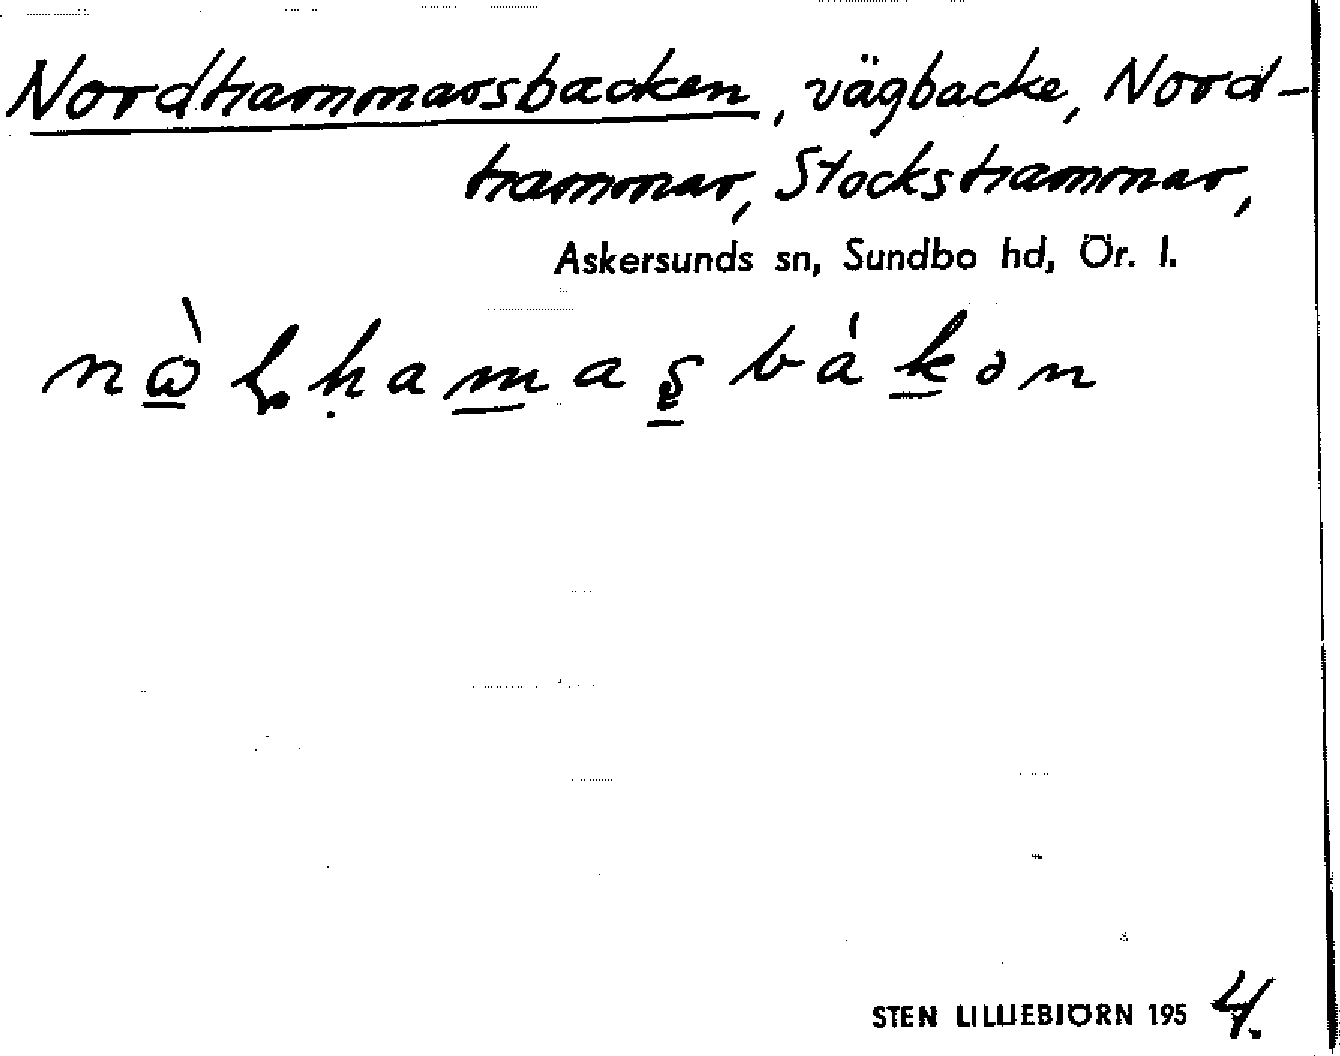 Nordhammarsbacken, vägbacke, Nord-
hammar, Stockshammar,
Askersunds sn, Sundbo hd, Ör. l.
STEN LILLIEBJÖRN 1954.